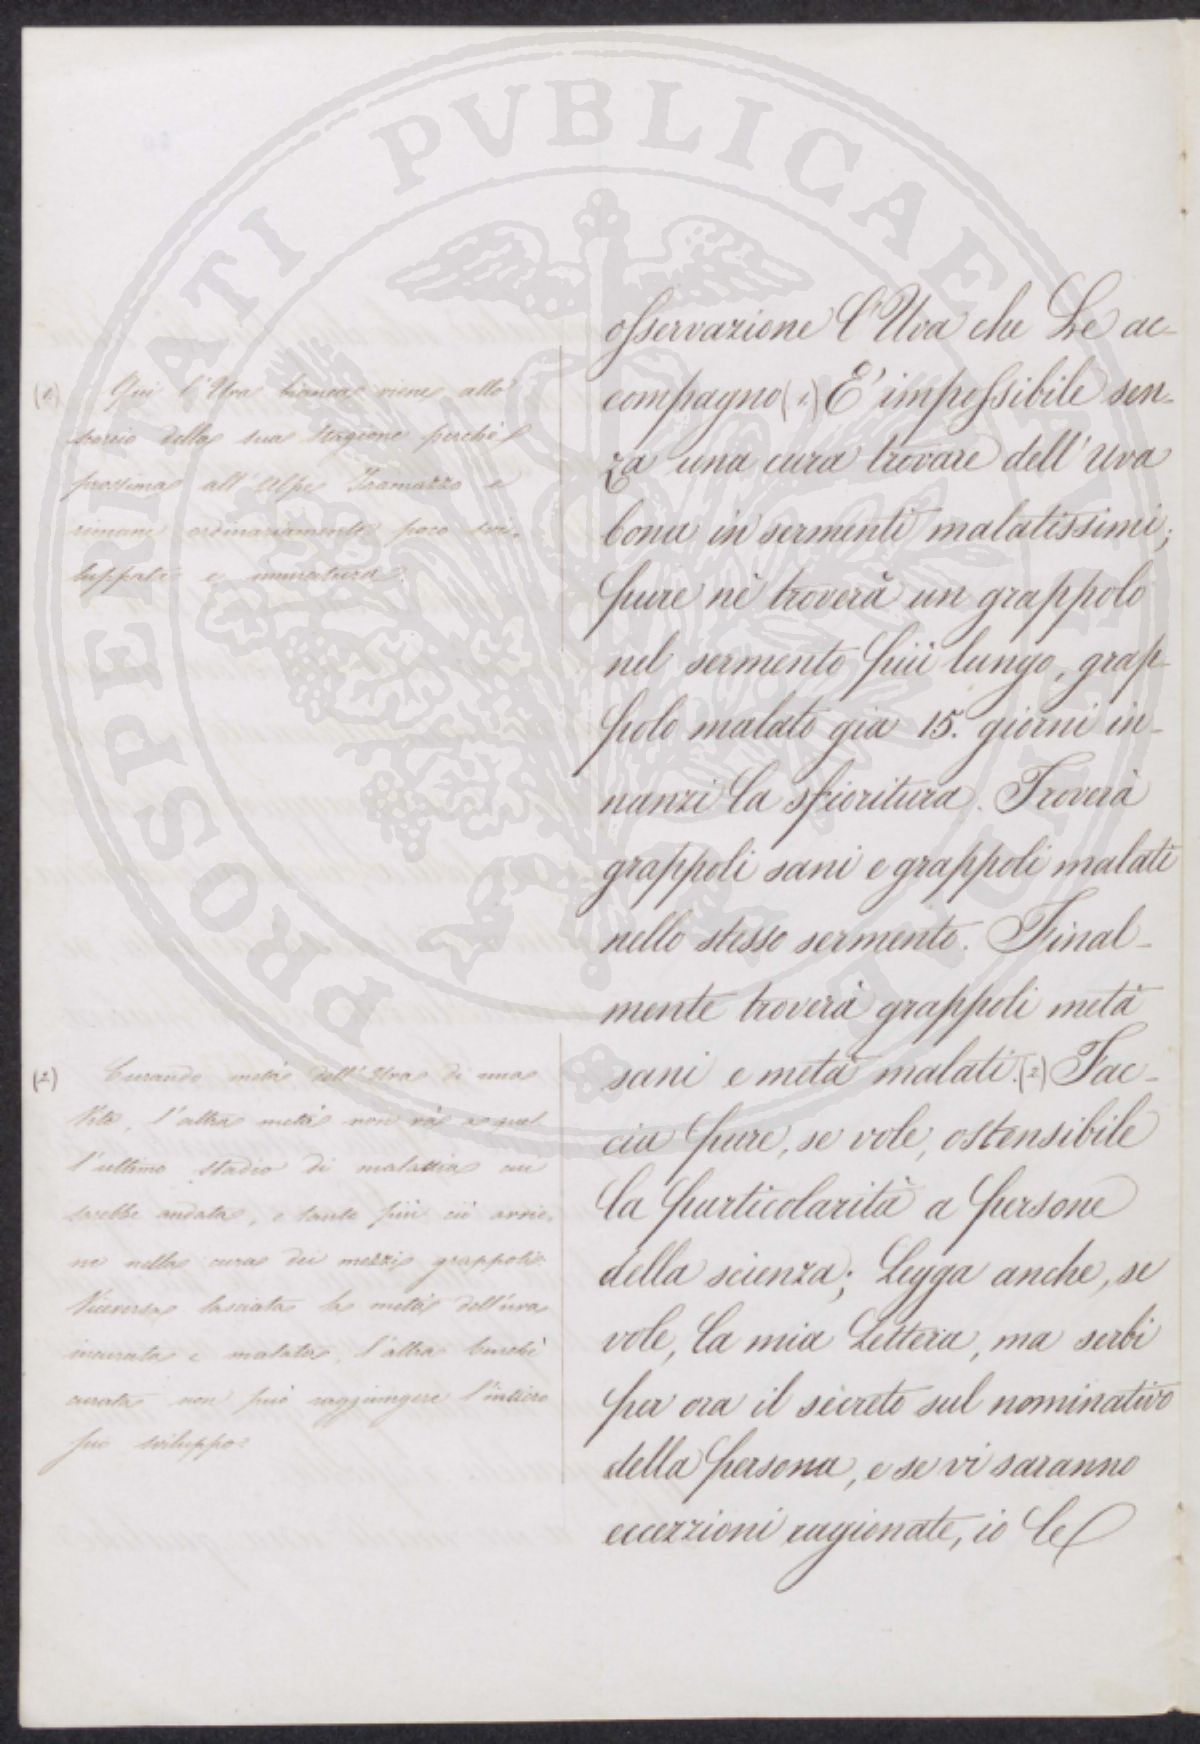 osservazione l'Uva che Le ac-
compagno (1.) E' impossibile sen-
za una cura trovare dell'uva
bona in sermenti malatissimi;
pure nè troverà un grappolo
nel sermento più lungo, grap-
polo malato gia 15. giorni in-
nanzi la sfioritura. Troverà
grappoli sani e grappoli malati
nello stesso sermento. Final-
mente troverà grappoli metà
sani e metà malati. (2) Fac-
cia pure, se vole, ostensibile
la particolarità a persone
della scienza; Legga anche, se
vole, la mia Lettera, ma serbi
per ora il secreto sul nominativo
della persona, e se vi saranno
eccezzioni ragionate, io le
(1) Qui l'Uva bianca viene allo
della sua stagione perchè
prossima all'Alpe e
rimane ordinariamente poco svi-
luppata e immatura.
(2) Curando metà dell'Uva di una
Vite, l'altra metà non và a quel
l'ultimo stadio di malattia cui
sarebbe andata, e tanto più ciò avvie-
ne nella cura dei mezzi grappoli.
Viceversa lasciata la metà dell'uva
incurata e malata, l'altra benchè
curata non può raggiungere l'intiero
suo sviluppo.
PROSPERITATI PVBLICAE